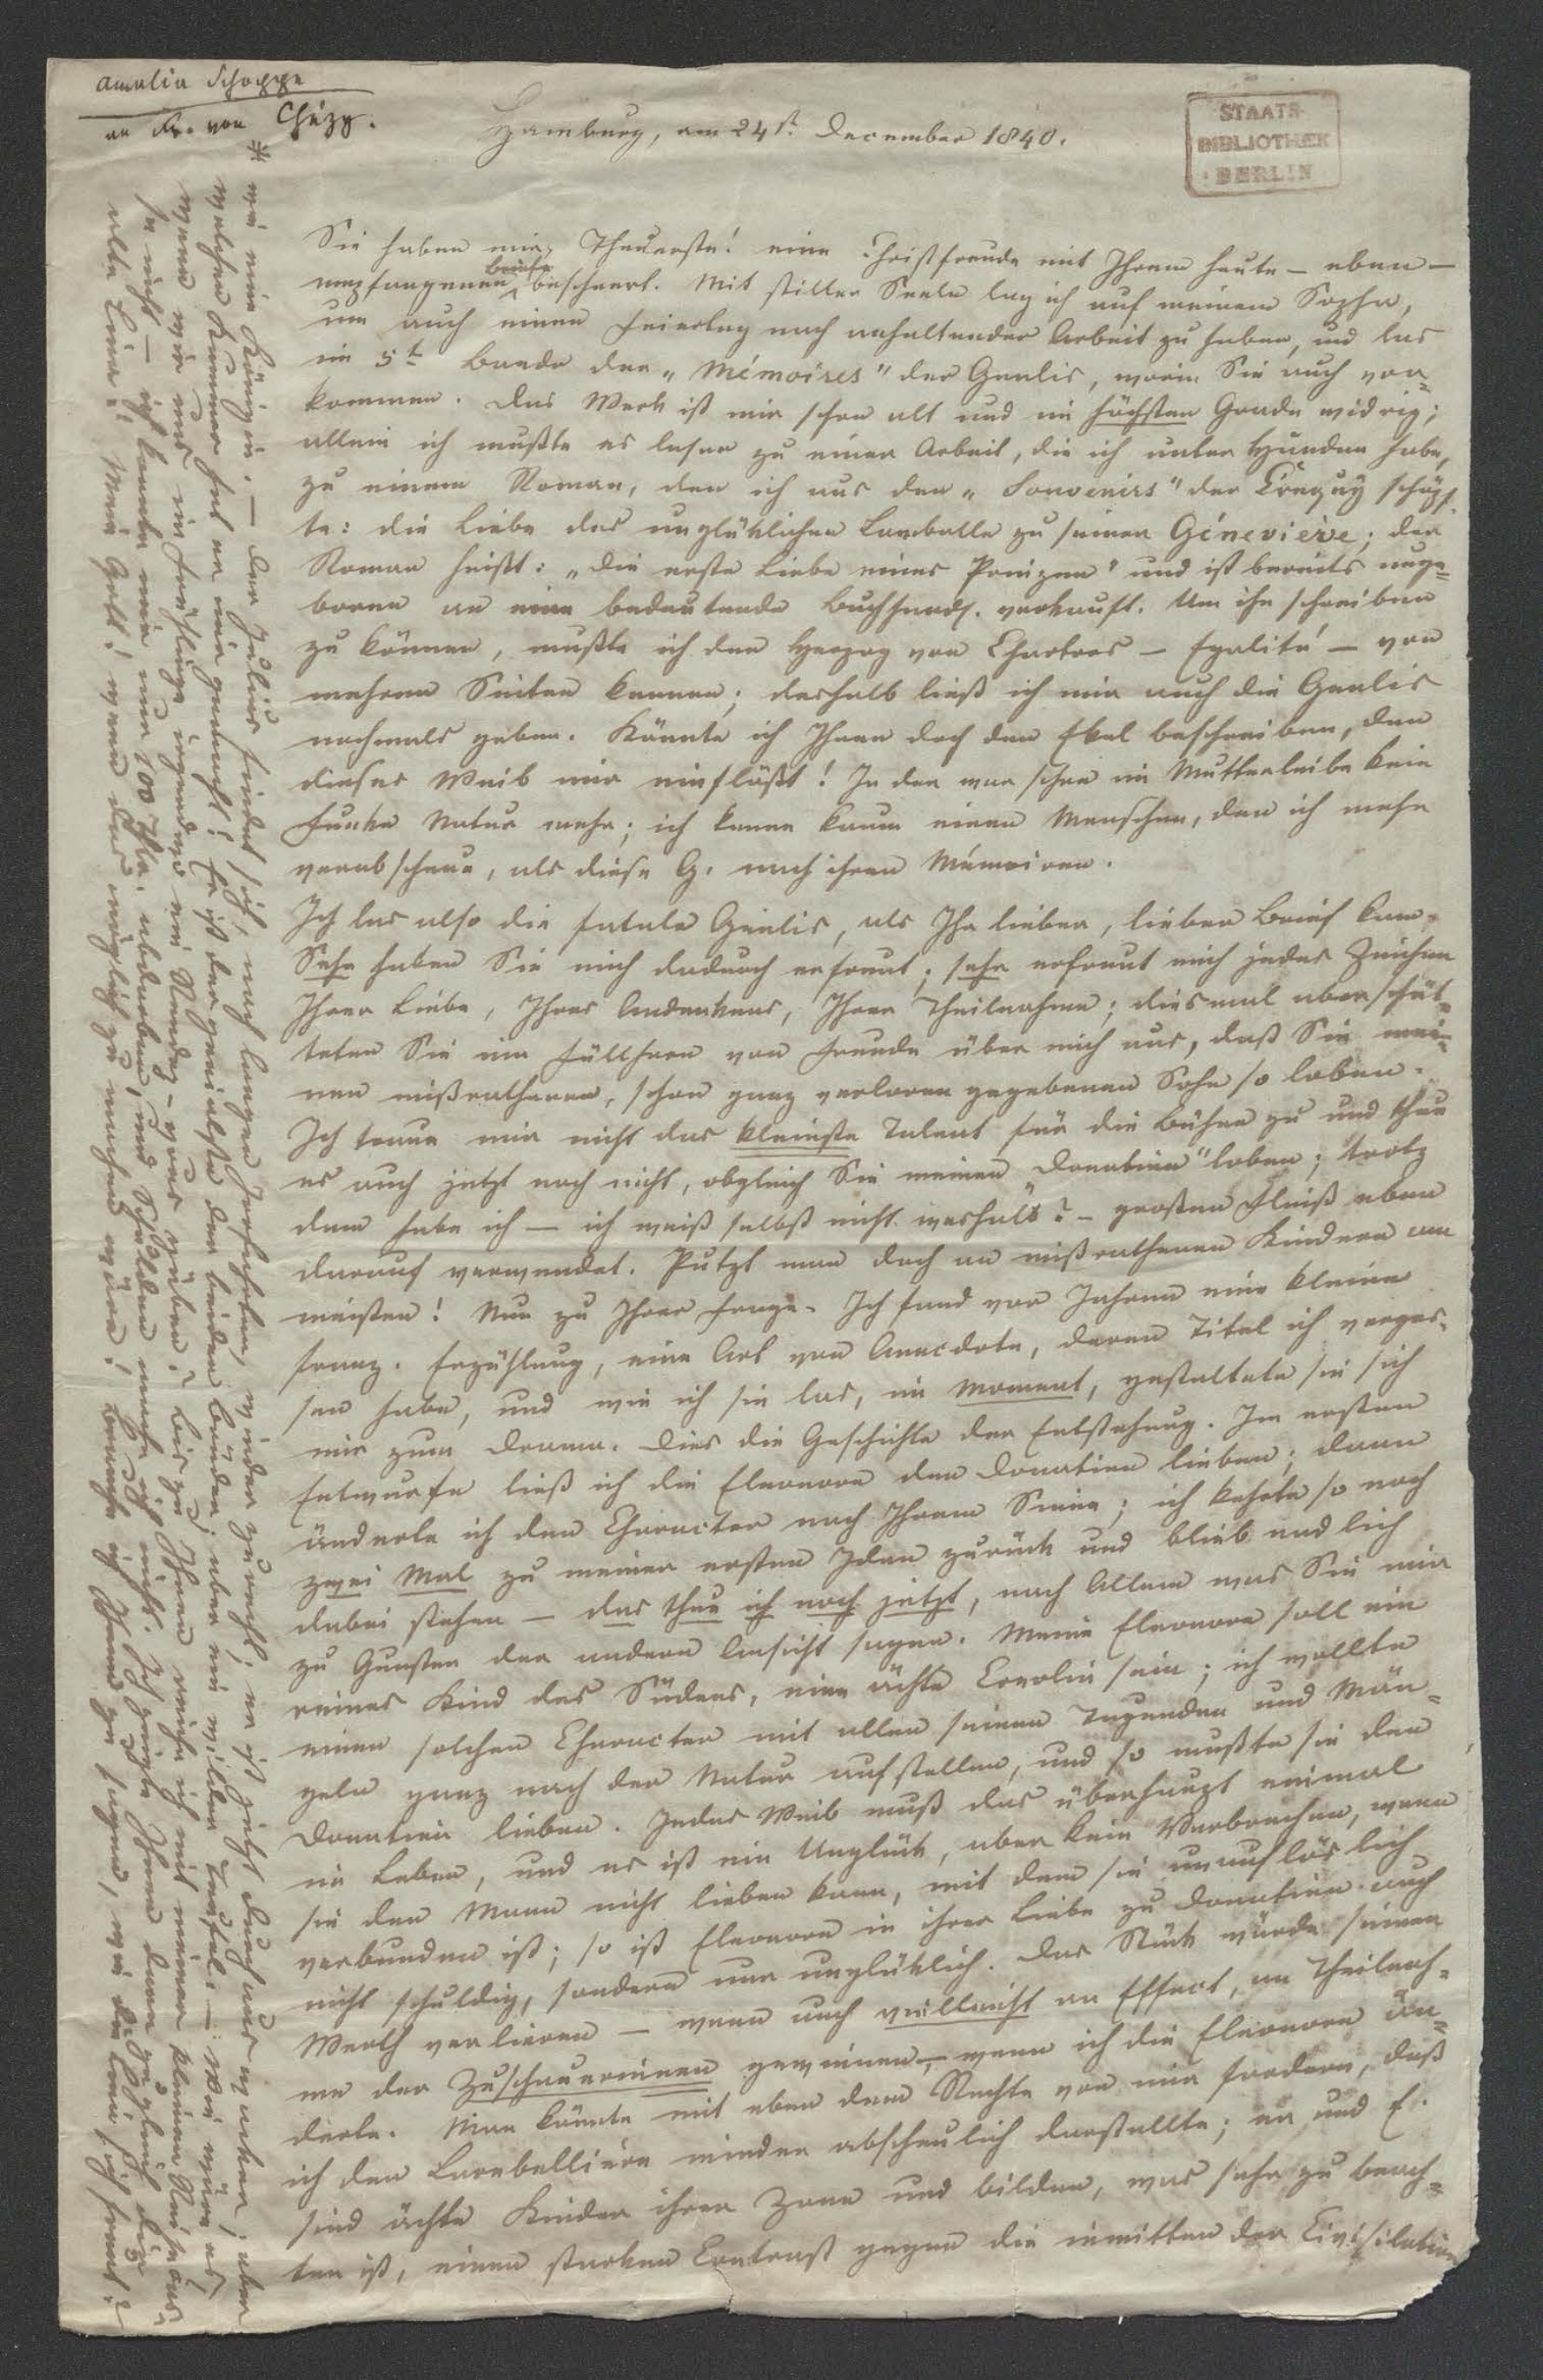 Amalia Schoppe
an Fr. von Chézy.
Hamburg, am 24st. December 1840.
STAATS-
BIBLIOTHEK
BERLIN
Sie haben mir, Theuerste! eine Christfreude mit Ihrem heute – eben –
empfangenen Briefe bescheert. Mit stiller Seele lag ich auf meinem Sopha,
um auch einen Feiertag nach anhaltender Arbeit zu haben, und las
im 5t. Bande der „Mémoires" der Genlis, worin Sie auch vor-
kommen. Das Werk ist mir schon alt und im höchsten Grade widrig;
allein ich mußte es lesen zu einer Arbeit, die ich unter Händen habe,
zu einem Roman, den ich aus den „Souvenirs" der Créquy schöpf-
te: die Liebe des unglücklichen Lamballe zu seiner Géneviève; der
Roman heißt: „Die erste Liebe eines Prinzen" und ist bereits unge-
boren an eine bedeutende Buchhandl. verkauft. Um ihn schreiben
zu können, mußte ich den Herzog von Chartres – Egalité – von
mehren Seiten kennen; deshalb ließ ich mir auch die Genlis
nochmals geben. Könnte ich Ihnen doch den Ekel beschreiben, den
dieses Weib mir einflößt! In der war schon im Mutterleibe kein
Funke Natur mehr; ich kenne kaum einen Menschen, den ich mehr
verabscheue, als diese G. nach ihren Mémoiren.
Ich las also die fatale Genlis, als Ihr lieber, lieber Brief kam.
Sehr haben Sie mich dadurch erfreut; sehr erfreut mich jedes Zeichen
Ihrer Liebe, Ihres Andenkens, Ihrer Theilnahme; diesmal aber schüt-
teten Sie ein Füllhorn von Freude über mich aus, daß Sie mei-
nen mißrathenen, schon ganz verloren gegebenen Sohn so loben.
Ich traue mir nicht das kleinste Talent für die Bühne zu und thue
es auch jetzt noch nicht, obgleich Sie meinen „Donatien" loben; trotz
dem habe ich – ich weiß selbst nicht weshalb? – großen Fleiß eben
darauf verwendet. Putzt man doch an mißrathenen Kindern am
meisten! Nun zu Ihrer Frage. Ich fand vor Jahren eine kleine
franz. Erzählung, eine Art von Anecdote, deren Titel ich verges-
sen habe, und wie ich sie las, im Moment, gestaltete sie sich
mir zum Drama. Dies die Geschichte der Entstehung. Im ersten
Entwurfe ließ ich die Eleonore den Donatien lieben; dann
änderte ich den Character nach Ihrem Sinne; ich kehrte so noch
zwei Mal zu meiner ersten Idee zurück und blieb endlich
dabei stehen – das thue ich noch jetzt, nach Allem was Sie mir
zu Gunsten der andern Ansicht sagen. Meine Eleonore soll ein
reines Kind des Südens, eine ächte Creolin sein; ich wollte
einen solchen Character mit allen seinen Tugenden und Män-
geln ganz nach der Natur aufstellen, und so mußte sie den
Donatien lieben. Jedes Weib muß das überhaupt einmal
im Leben, und es ist ein Unglück, aber kein Verbrechen, wenn
sie den Mann nicht lieben kann, mit dem sie unauflöslich
verbunden ist; so ist Eleonore in ihrer Liebe zu Donatien auch
nicht schuldig, sondern nur unglücklich. Das Stück würde seinen
Werth verlieren – wenn auch vielleicht an Effect, an Theilnah-
me der Zuschauerinnen gewinnen – wenn ich die Eleonore än-
derte. Man könnte mit eben dem Rechte von mir fordern, daß
ich den Larebellière minder abscheulich darstellte; er und E.
sind ächte Kinder ihrer Zone und bilden, was sehr zu beach-
ten ist, einen starken Contrast gegen die inmitten der Civilisation
* wie eine Königin. – Der Julius findet sich, nach langen Irrfahrten, wieder zurecht; er ist jetzt durchaus wacker; aber
welchen Kummer hat er mir gemacht! Er ist der genialste der beiden Brüder, aber ein wilder Teufel. – Wie wäre es,
wenn wir uns im Frühlinge irgendwo ein Rendez-vous gäben? Bis zu Ihnen reiche ich mit meiner kleinen Reisecas-
se nicht – ich könnte mir nur 100 Thlr. abdarben, und Schulden mache ich nicht. Ich zeigte Ihnen dann zugleich die
alte Lina! Mein Gott! wenn das möglich zu machen wäre! Brauche ich Ihnen zu sagen, wie die Lina sich freut?